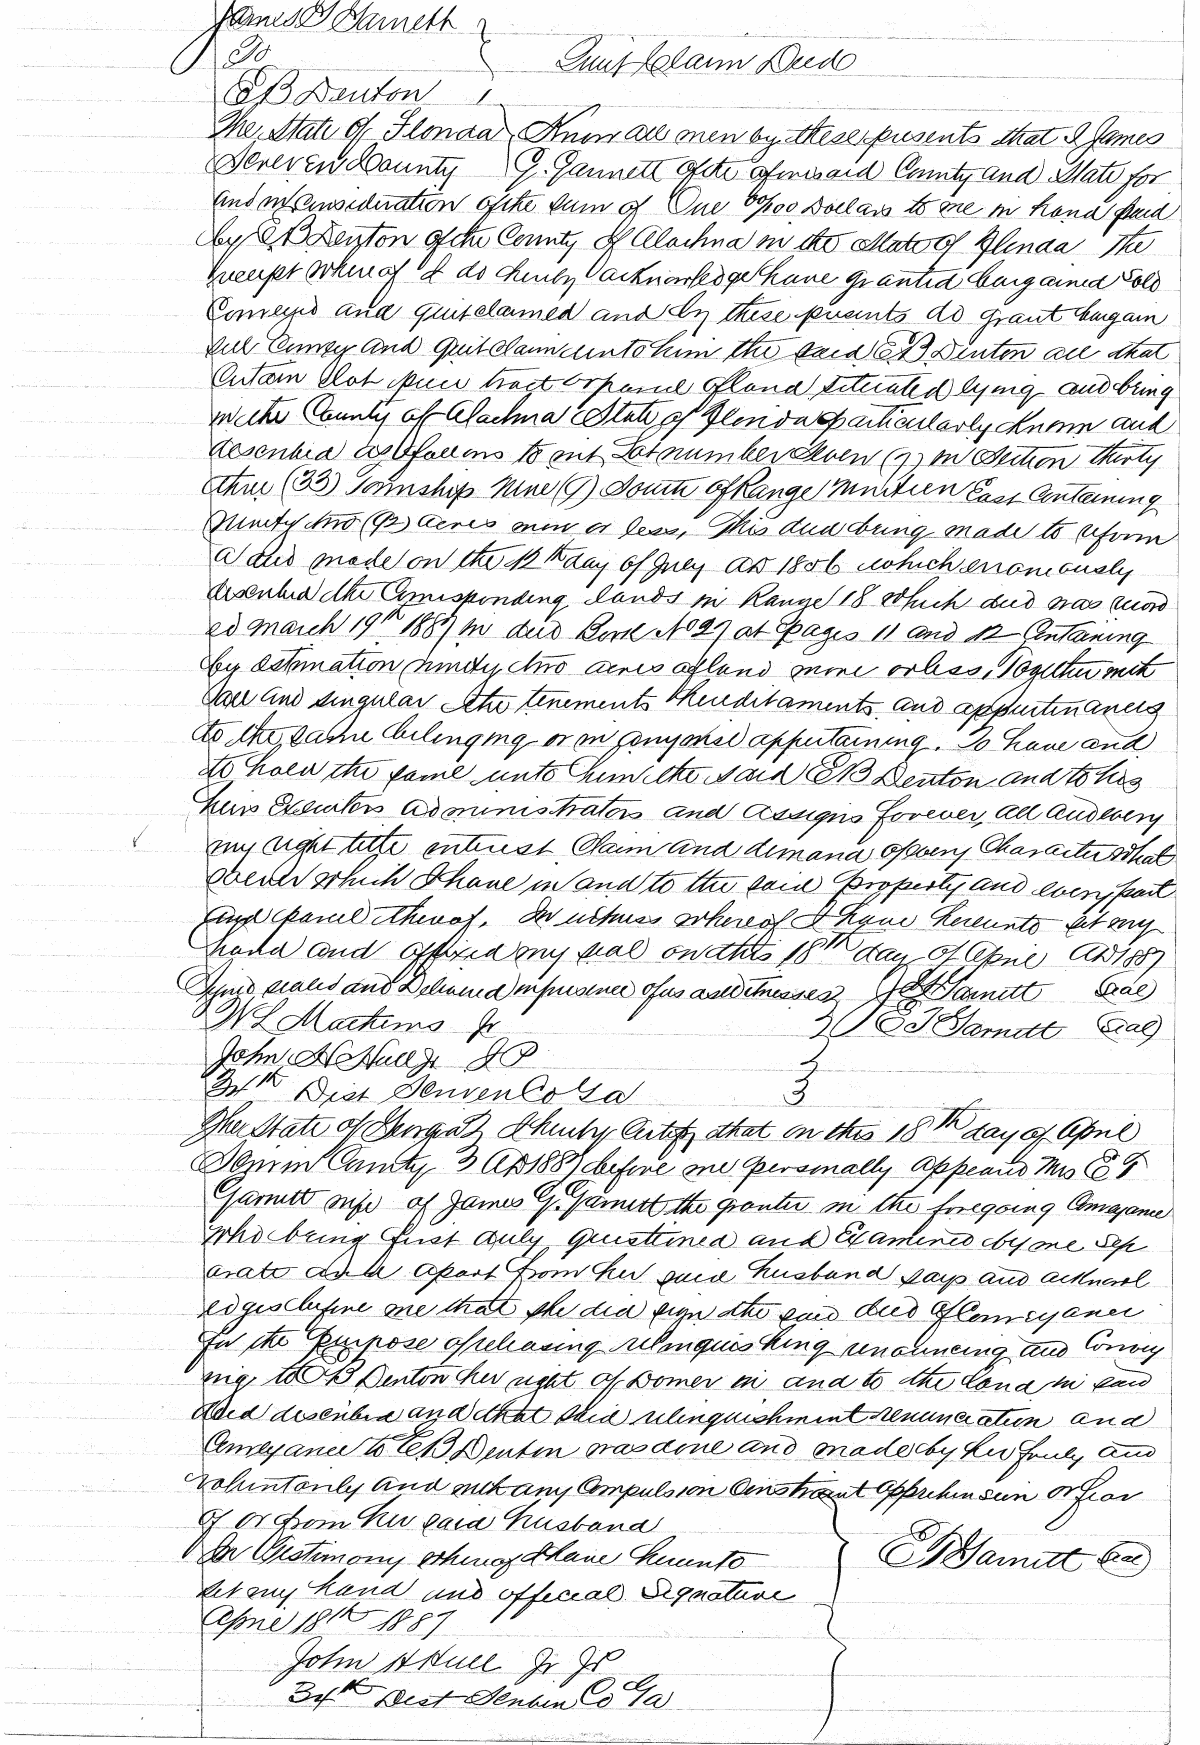 James G Garnett
To
Quit Claim Deed
E B Denton
The State of Florida Know all men by these presents that I James
Screven County G. Garnett of the aforesaid County and State for
and in Consideration of the sum of One 00/100 Dollars to me in hand paid
by E B Denton of the County of Alachua in the State of Florida the
receipt whereof I do hereby acknowledge have granted bargained sold
Conveyed and quitclaimed and by these presents do grant bargain
sell Convey and quit claim unto him the said E B Denton all that
Certain lot piece tract or parcel of land situated lying and being
in the County of Alachua State of Florida particularly Known and
described as follows to wit Lot number Seven (7) in Section thirty
three (33) Township Nine (9) South of Range Nineteen East Containing
Ninety two (92) acres more or less, This deed being made to reform
a deed made on the 12th day of July AD 1886 which erroneously
described the Corresponding lands in Range 18 which deed was record
ed March 19th 1887 in deed Book No 27 at pages 11 and 12 Containing
by estimation ninety two acres of land more or less, Together with
all and singular the tenements hereditaments and appurtinances
to the same belonging or in anywise appertaining. To have and
to hold the same unto him the said E B Denton and to his
heirs Executors administrators and assigns forever, all and every
my right title interest Claim and demand of every Character what
soever which I have in and to the said Property and every part
and parcel thereof. In witness whereof I have hereunto set my
hand and affixed my seal on this 18th day of April AD 1887
Signed sealed and Delivered in presence of us as witnesses J G Garnett Seal
W L Mathews Jr E T Garnett Seal
John H Hull Jr J P
34th Dist Screven Co Ga
The State of Georgia I hereby Certify that on this 18th day of April
Screven County AD 1887 before me personally appeared Mrs E T
Garnett wife of James G. Garnett the grantor in the foregoing Conveyance
who being first duly questioned and Examined by me sep
arate and apart from her said husband says and acknowl
edges before me that she did sign the said deed of Conveyance
for the Purpose of releasing relinquishing renouncing and Convey
ing to E B Denton her right of Dower in and to the land in said
deed described and that said relinquishment renunciation and
Conveyance to E B Denton was done and made by her freely and
voluntarily and without any Compulsion Constraint apprehension or fear
of or from her said husband
In Testimony whereof I have hereunto E T Garnett Seal
set my hand and official Signature
April 18th 1887
John H Hull Jr JP
34th Dist Screven Co Ga